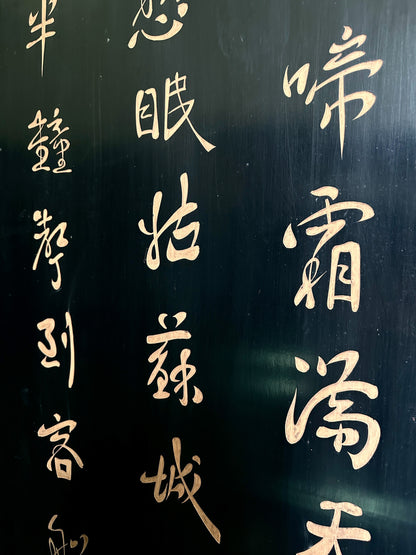 啼霜滿天
愁眠姑蘇城
半鐘聲到客船